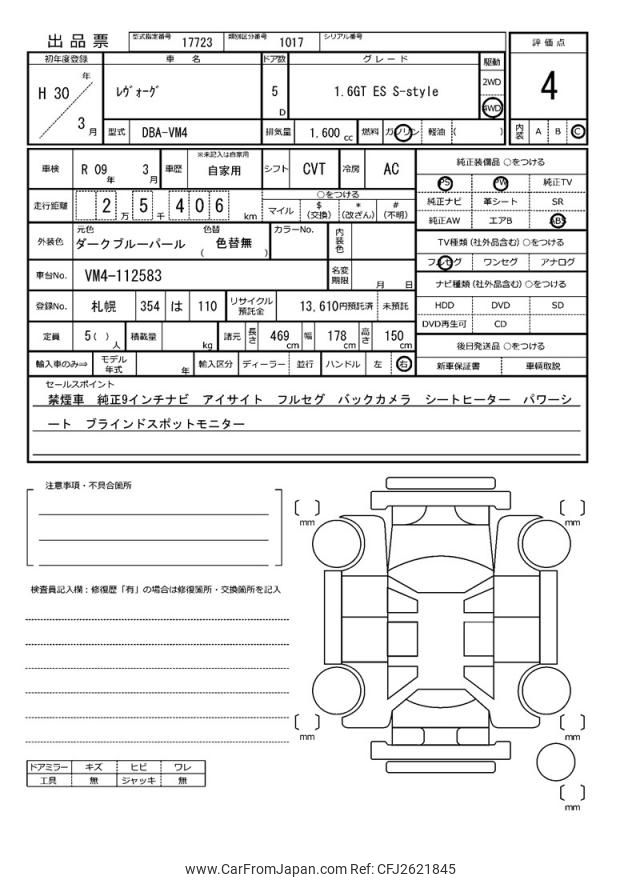 出品票 型式指定番号 17723 類別区分番号 1017 シリアル番号
評価点
4
内装 A B C
初年度登録 車名 ドア数 グレード 駆動
H 30 年 3 月 レヴォーグ 5 D 1.6GT ES S-style 2WD 4WD
型式 DBA-VM4 排気量 1,600 cc 燃料 ガソリン 軽油 ( )
車検 R 09 年 3 月 車歴 ※未記入は自家用 自家用 シフト CVT 冷房 AC
走行距離 2 万 5 千 4 0 6 km ○をつける
マイル $ (交換) * (改ざん) # (不明)
外装色 元色 ダークブルーパール 色替 ( 色替無 ) カラーNo. 内装色
車台No. VM4-112583 名変期限 月 日
登録No. 札幌 354 は 110 リサイクル預託金 13,610円預託済 未預託
定員 5( ) 人 積載量 kg 諸元 長さ 469 cm 幅 178 cm 高さ 150 cm
輸入車のみ⇒ モデル年式 年 輸入区分 ディーラー 並行 ハンドル 左 右
純正装備品 ○をつける
PS PW 純正TV
純正ナビ 革シート SR
純正AW エアB ABS
TV種類 (社外品含む) ○をつける
フルセグ ワンセグ アナログ
ナビ種類 (社外品含む) ○をつける
HDD DVD SD
DVD再生可 CD
後日発送品 ○をつける
新車保証書 車輌取説
セールスポイント
禁煙車 純正9インチナビ アイサイト フルセグ バックカメラ シートヒーター パワーシ
ート ブラインドスポットモニター
注意事項・不具合箇所
検査員記入欄:修復歴「有」の場合は修復箇所・交換箇所を記入
ドアミラー キズ ヒビ ワレ
工具 無 ジャッキ 無
[ ] mm
[ ] mm
[ ] mm
[ ] mm
[ ] mm
www.CarFromJapan.com Ref: CFJ2621845